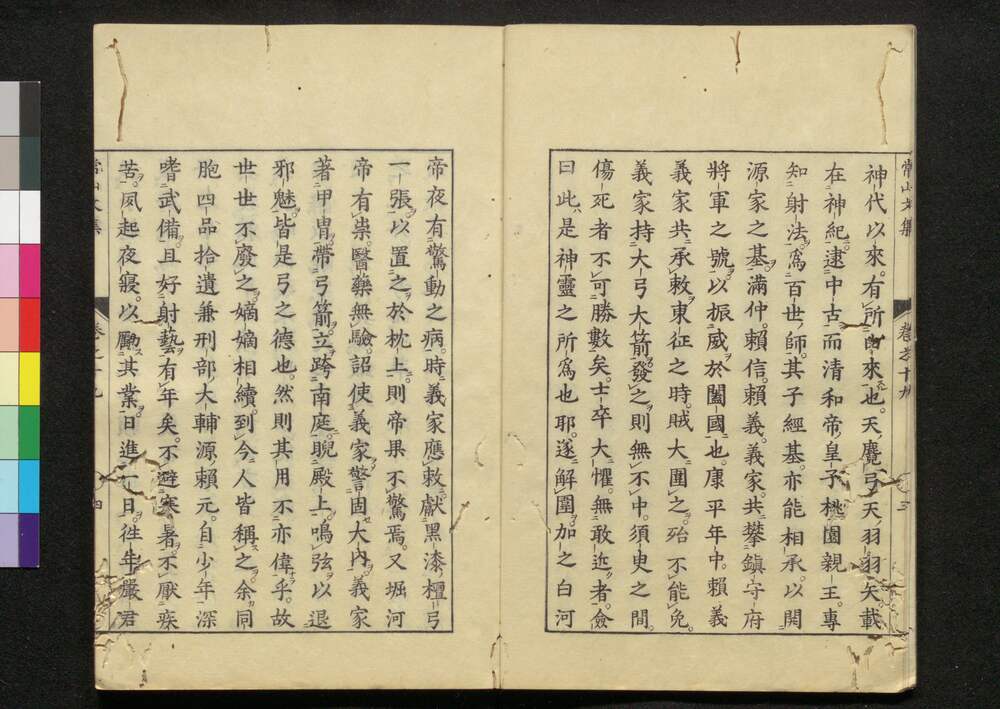 神代以來。有所由來也。天麑弓天羽羽矢載
在神紀。逮中古。而清和帝皇子桃園親王。專
知射法。爲百世師。其子經基。亦能相承。以開
源家之基。滿仲。賴信。賴義。義家。共攀鎮守府
將軍之號。以振威於闔國也。康平年中。賴義
義家共承敕東征之時。賊大圍之。殆不能免。
義家持大弓大箭。發之則無不中。須臾之間。
傷死者不可勝數矣。士卒大懼。無敢近者。僉
曰此是神靈之所爲也耶。遂解圍。加之白河
帝夜有驚動之病。時義家應敕獻黑漆檀弓
一張。以置之於枕上。則帝果不驚焉。又堀河
帝有祟。醫藥無驗。詔使義家警固大內。義家
著甲冑。帶弓箭。立跨南庭。睨殿上。鳴弦以退
邪魅。皆是弓之德也。然則其用不亦偉乎。故
世世不廢之。嫡嫡相續。到今人皆稱之。余同
胞四品拾遺兼刑部大輔源賴元。自少年深
嗜武備。且好射藝。有年矣。不避寒暑。不厭疾
苦。夙起夜寢。以勵其業。日進一日。往年嚴君
常山文集
卷之十九
四